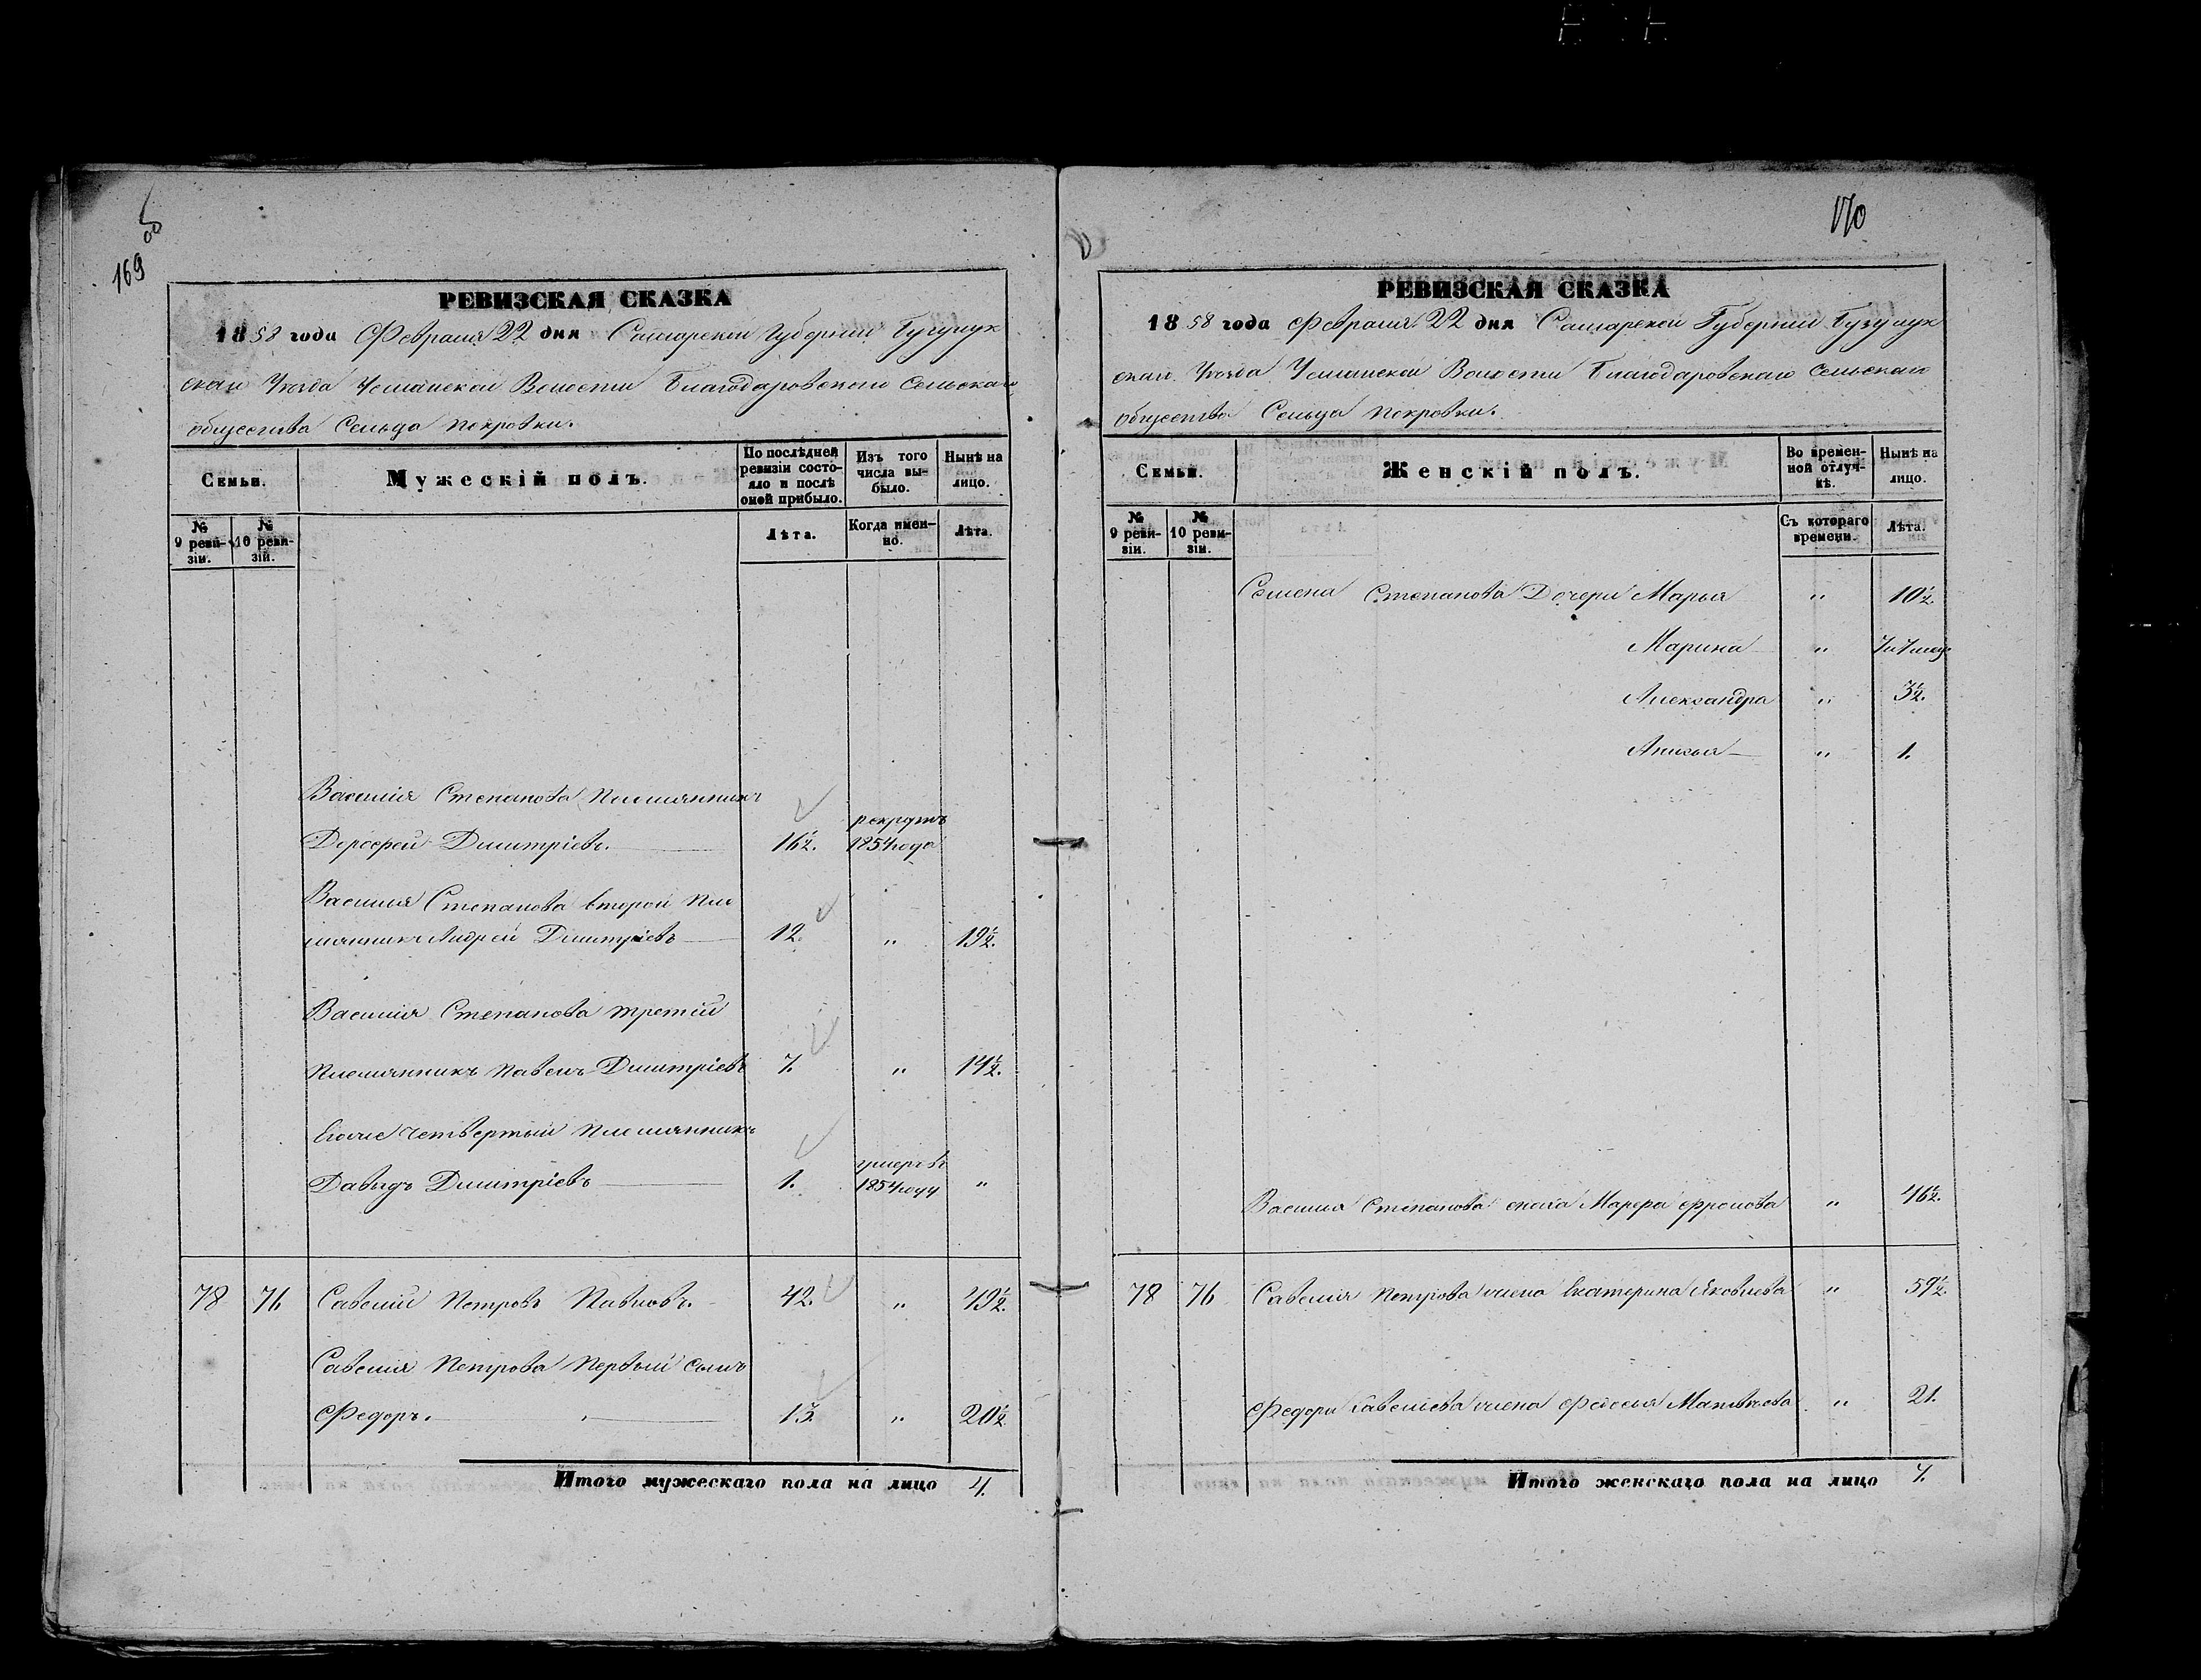 169 об
РЕВИЗСКАЯ СКАЗКА
1858 года Февраля 22 дня Самарской Губернии Бузулук
скаго Уезда Усманской Волости Благодаровскаго Сельскаго
общества Сельца Покровки.
Семьи.
Мужескій полъ.
По послѣдней ревизіи состояло и послѣ оной прибыло.
Изъ того числа выбыло.
Нынѣ на лицо.
№ 9 ревизіи.
№ 10 ревизіи.
Лѣта.
Когда именно.
Лѣта.
Василія Степанова Племянникъ
рекрутъ
Дорофей Димитріевъ. 16½. 1854 года
Василия Степанова второй Пле
мянникъ Андрей Димитріевъ 12. " 19½.
Василия Степанова третій
Племянникъ Павелъ Димитріевъ 7. " 14½.
Егоже четвертый Племянникъ
умеръ въ
Давыдъ Димитріевъ 1. 1854 году "
78 76 Савелій Петровъ Павловъ. 42. " 49½.
Савелия Петрова Первый сынъ
Федоръ. 13. " 20½.
Итого мужескаго пола на лицо 4.
170
РЕВИЗСКАЯ СКАЗКА
1858 года Февраля 22 дня Самарской Губернии Бузулук
скаго Уезда Усманской Волости Благодаровскаго Сельскаго
общества Сельца Покровки.
Семьи.
Женскій полъ.
Во временной отлучкѣ.
Нынѣ на лицо.
№ 9 ревизіи.
№ 10 ревизіи.
Съ котораго времени.
Лѣта.
Семена Степанова Дочери Марья " 10½.
Марина "
Александра " 3½.
Анисья " 1.
Василия Степанова сноха Марфа Фролова " 46½.
78 76 Савелия Петрова жена Екатерина Яковлева " 59½.
Федора Савельева жена Федосья Матвѣева " 21.
Итого женскаго пола на лицо 7.